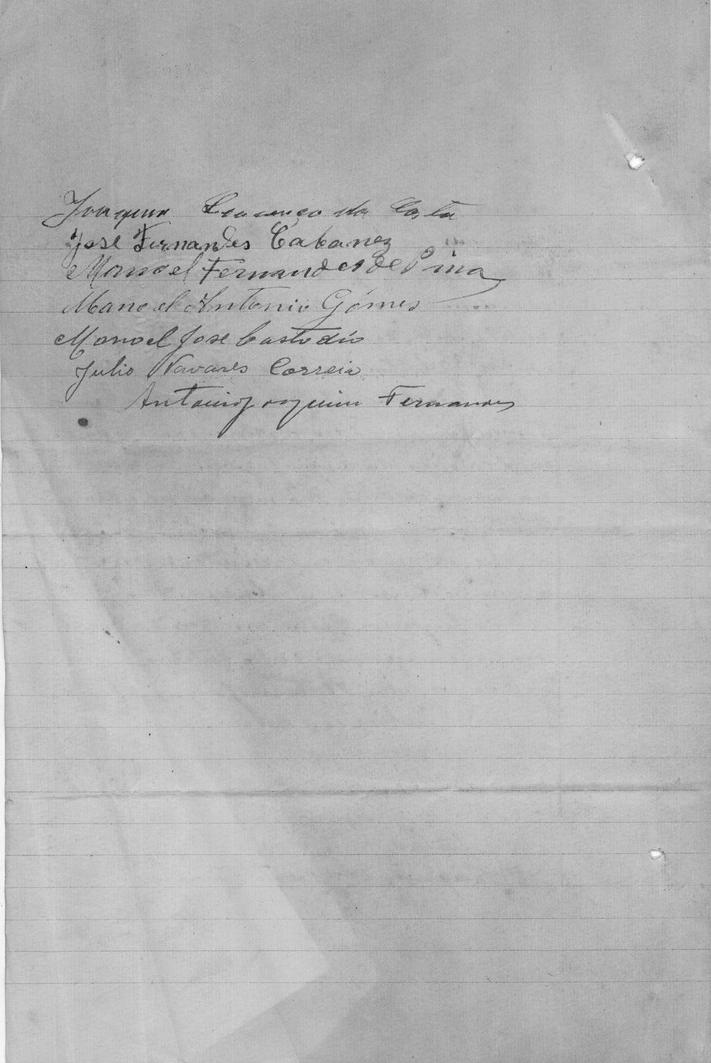 Joaquim Lourenço da Costa
José Fernandes Cabanez
Manoel Fernandes de Pina
Manoel Antonio Gómes
Manoel José Custodio
Julio Navares Correia
Antonio Joaquim Fernandes